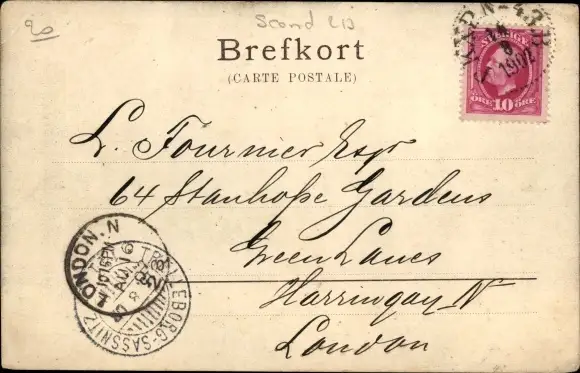 20
Brefkort
(CARTE POSTALE)
SVERIGE
ÖRE 10 ÖRE
1902
L. Fournier Esqr
64 Stanhope Gardens
Green Lanes
Harringay N
London
LONDON. N
TRELLEBORG-SASSNITZ